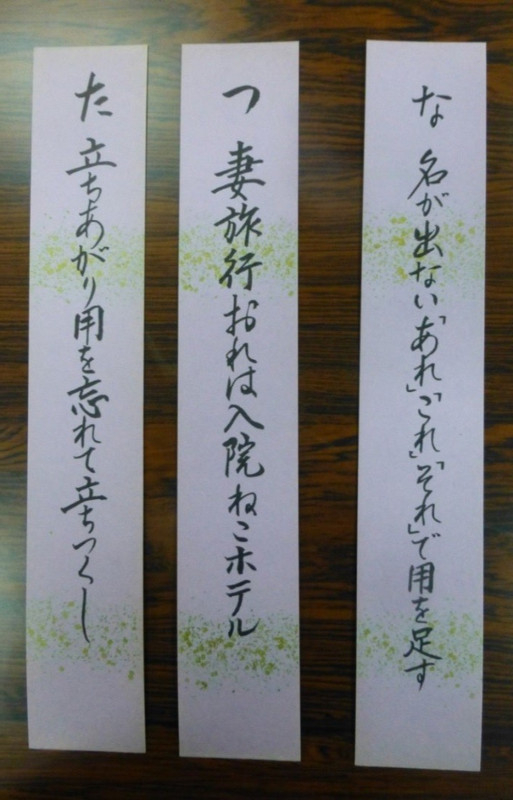 な 名が出ない「あれ」「これ」「それ」で用を足す
つ 妻旅行おれは入院ねこホテル
た 立ちあがり用を忘れて立ちつくし